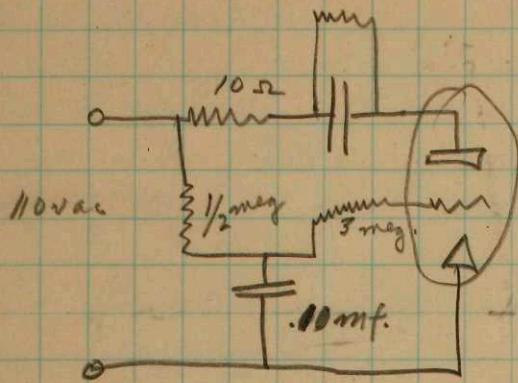 10 Ω
110 vac
1/2 meg
3 meg.
.10 mf.